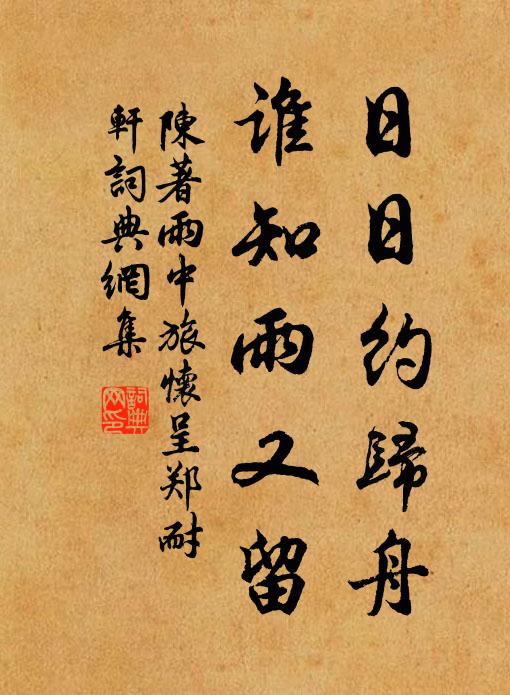 日日約歸舟
誰知雨又留
陳著雨中旅懷呈郑耐
軒詞典網集
詞典
网印